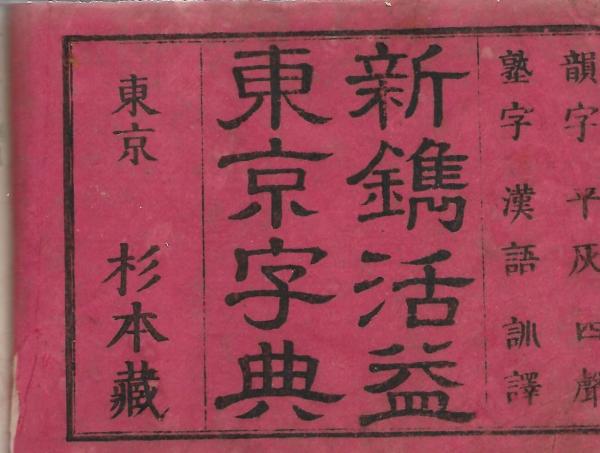 韻字平灰四聲
塾字漢語訓譯
新鐫活益
東京字典
東京 杉本藏